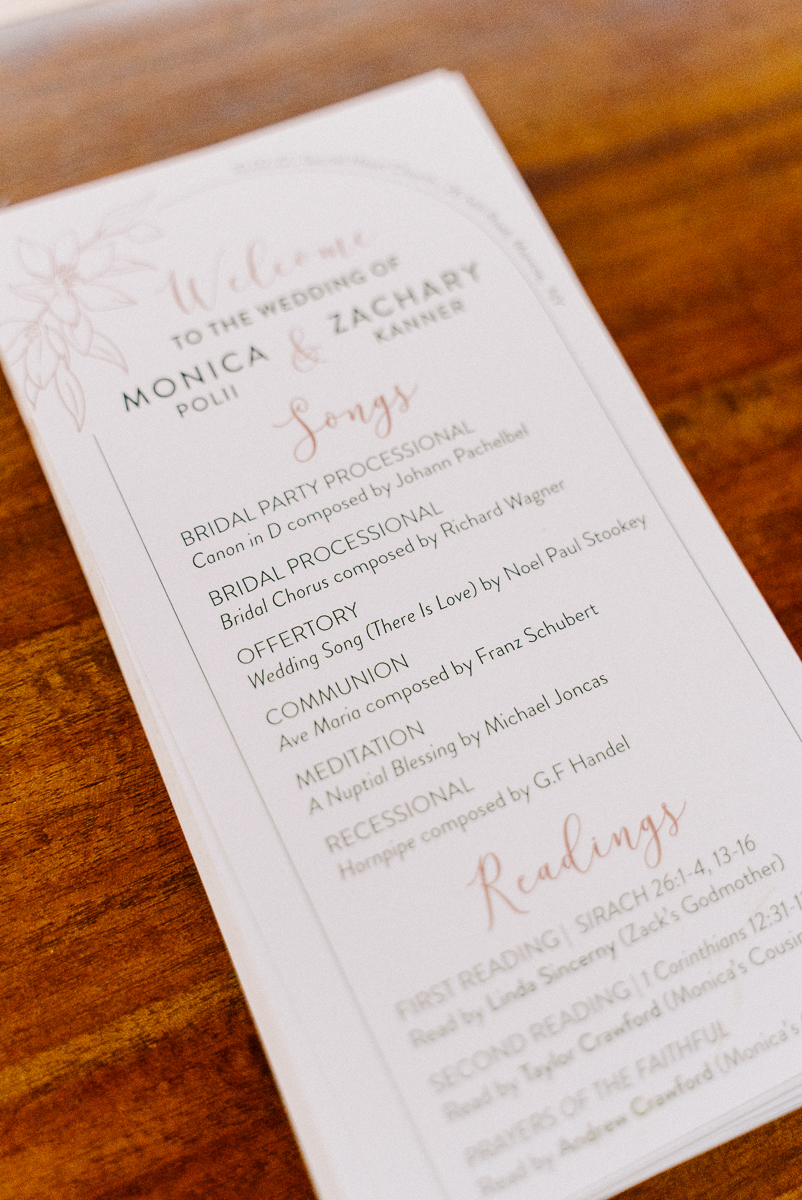 Welcome
TO THE WEDDING OF
MONICA & ZACHARY
POLII KANNER
Songs
BRIDAL PARTY PROCESSIONAL
Canon in D composed by Johann Pachelbel
BRIDAL PROCESSIONAL
Bridal Chorus composed by Richard Wagner
OFFERTORY
Wedding Song (There Is Love) by Noel Paul Stookey
COMMUNION
Ave Maria composed by Franz Schubert
MEDITATION
A Nuptial Blessing by Michael Joncas
RECESSIONAL
Hornpipe composed by G.F Handel
Readings
FIRST READING | SIRACH 26:1-4, 13-16
Read by Linda Sincerny (Zack's Godmother)
SECOND READING | 1 Corinthians 12:31-1
Read by Taylor Crawford (Monica's Cousin
PRAYERS OF THE FAITHFUL
Read by Andrew Crawford (Monica's